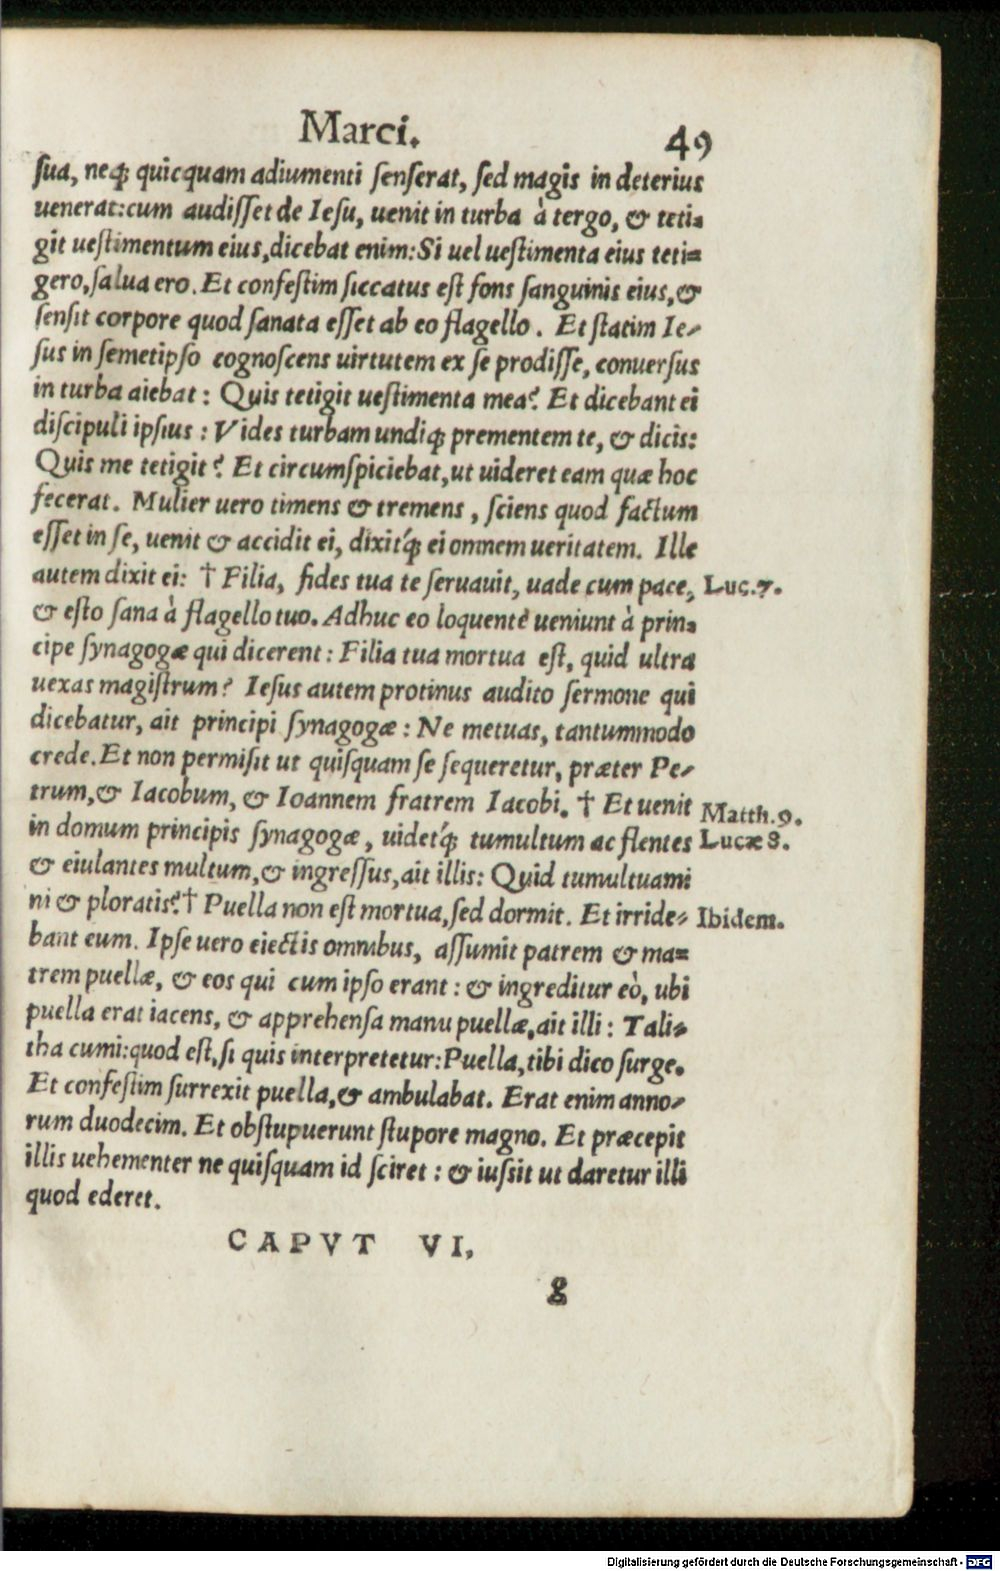 Marci. 49
ſua, neq; quicquam adiumenti ſenſerat, ſed magis in deterius
uenerat:cum audiſſet de Ieſu, uenit in turba à tergo, & teti-
git ueſtimentum eius,dicebat enim:Si uel ueſtimenta eius teti-
gero,ſalua ero. Et confeſtim ſiccatus eſt fons ſanguinis eius,&
ſenſit corpore quod ſanata eſſet ab eo flagello. Et ſtatim Ie-
ſus in ſemetipſo cognoſcens uirtutem ex ſe prodiſſe, conuerſus
in turba aiebat: Quis tetigit ueſtimenta mea? Et dicebant ei
diſcipuli ipſius: Vides turbam undiq; prementem te, & dicis:
Quis me tetigit? Et circumſpiciebat,ut uideret eam quæ hoc
fecerat. Mulier uero timens & tremens, ſciens quod factum
eſſet in ſe, uenit & accidit ei, dixitq́; ei omnem ueritatem. Ille
autem dixit ei: † Filia, fides tua te ſeruauit, uade cum pace, Luc.7.
& eſto ſana à flagello tuo. Adhuc eo loquente ueniunt à prin-
cipe ſynagogæ qui dicerent: Filia tua mortua eſt, quid ultra
uexas magiſtrum? Ieſus autem protinus audito ſermone qui
dicebatur, ait principi ſynagogæ: Ne metuas, tantummodo
crede. Et non permiſit ut quiſquam ſe ſequeretur, præter Pe-
trum,& Iacobum, & Ioannem fratrem Iacobi. † Et uenit Matth.9.
in domum principis ſynagogæ, uidetq́; tumultum ac flentes Lucæ 8.
& eiulantes multum,& ingreſſus,ait illis: Quid tumultuami
ni & ploratis? † Puella non eſt mortua,ſed dormit. Et irride- Ibidem.
bant eum. Ipſe uero eiectis omnibus, aſſumit patrem & ma-
trem puellæ, & eos qui cum ipſo erant: & ingreditur eò, ubi
puella erat iacens, & apprehenſa manu puellæ,ait illi: Tali-
tha cumi:quod eſt,ſi quis interpretetur:Puella,tibi dico ſurge.
Et confeſtim ſurrexit puella,& ambulabat. Erat enim anno-
rum duodecim. Et obſtupuerunt ſtupore magno. Et præcepit
illis uehementer ne quiſquam id ſciret: & iuſſit ut daretur illi
quod ederet.
CAPVT VI.
g
Digitalisierung gefördert durch die Deutsche Forschungsgemeinschaft - DFG